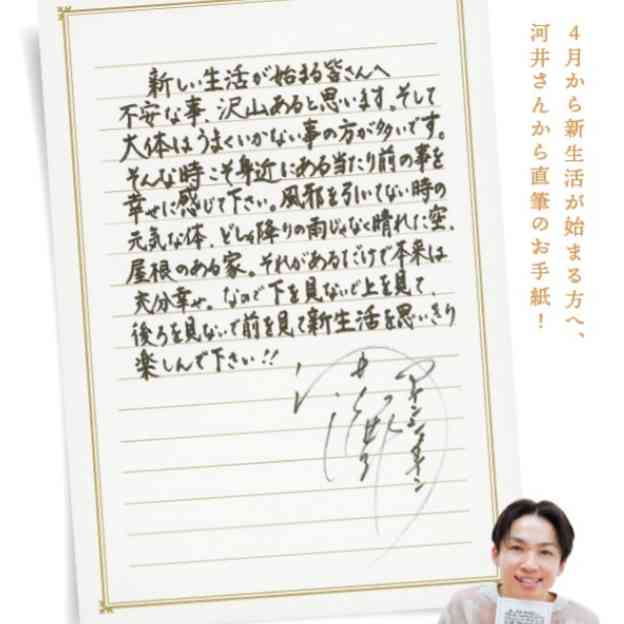 4月から新生活が始まる方へ、
河井さんから直筆のお手紙！
新しい生活が始まる皆さんへ
不安な事、沢山あると思います。そして
大体はうまくいかない事の方が多いです。
そんな時こそ身近にある当たり前の事を
幸せに感じて下さい。風邪を引いてない時の
元気な体、どしゃ降りの雨じゃなく晴れた空、
屋根のある家。それがあるだけで本来は
充分幸せ。なので下を見ないで上を見て、
後ろを見ないで前を見て新生活を思いきり
楽しんで下さい!!